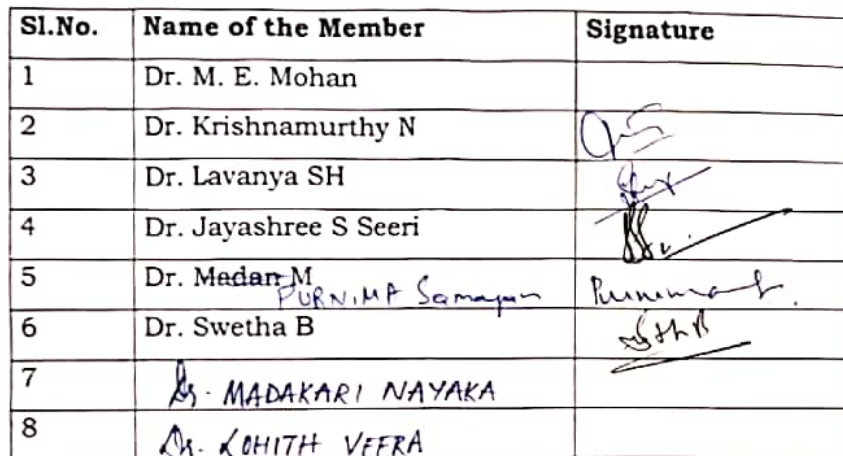 Sl.No. Name of the Member Signature
1 Dr. M. E. Mohan
2 Dr. Krishnamurthy N
3 Dr. Lavanya SH
4 Dr. Jayashree S Seeri
5 Dr. Madan M
PURNIMA
6 Dr. Swetha B
7 Dr. MADAKARI NAYAKA
8 Dr. LOHITH VEERA